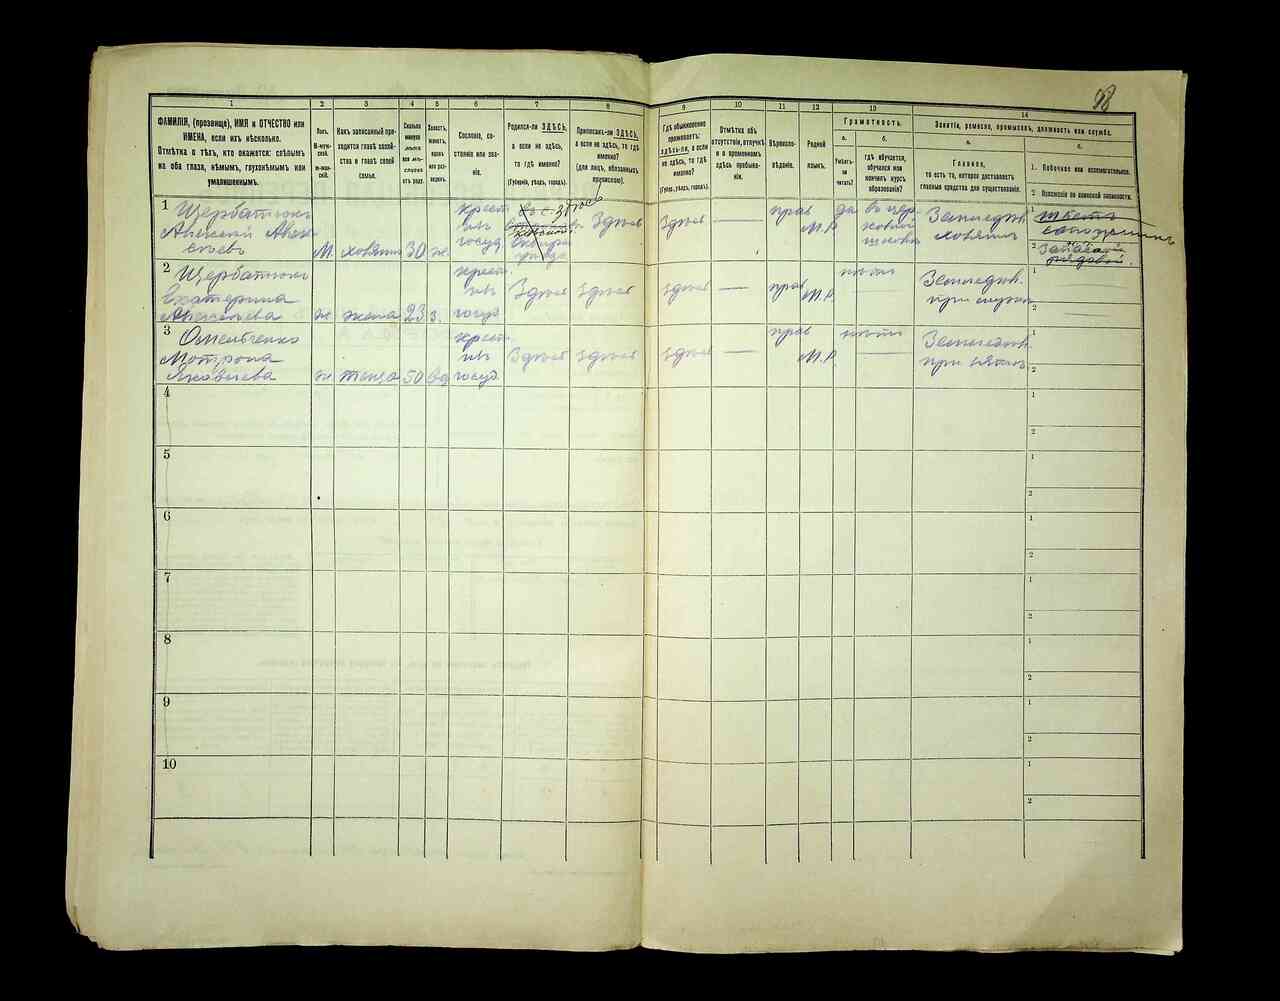 98
1 2 3 4 5 6 7 8 9 10 11 12 13 14
ФАМИЛІЯ, (прозвище), ИМЯ и ОТЧЕСТВО или
ИМЕНА, если ихъ нѣсколько.
Отмѣтка о тѣхъ, кто окажется: слѣпымъ
на оба глаза, нѣмымъ, глухонѣмымъ или
умалишеннымъ.
Полъ.
М-мужской.
Ж-женскій.
Какъ записанный приходится главѣ хозяйства и главѣ своей
семьи.
Сколько
минуло
лѣтъ
или мѣсяцевъ
отъ роду.
Холостъ,
женатъ,
вдовъ
или разведенъ.
Сословіе, состояніе или званіе.
Родился-ли ЗДѢСЬ,
а если не здѣсь,
то гдѣ именно?
(Губернія, уѣздъ, городъ).
Приписанъ-ли ЗДѢСЬ,
а если не здѣсь, то гдѣ
именно?
(для лицъ, обязанныхъ
припискою).
Гдѣ обыкновенно
проживаетъ:
здѣсь-ли, а если
не здѣсь, то гдѣ
именно?
(Губернія, уѣздъ, городъ).
Отмѣтка объ
отсутствіи, отлучкѣ
и о временномъ
здѣсь пребываніи.
Вѣроисповѣданіе.
Родной
языкъ.
Грамотность.
а.
Умѣетъ-ли
читать?
б.
гдѣ обучается,
обучался или
кончилъ курсъ
образованія?
Занятіе, ремесло, промыселъ, должность или служба.
а.
Главное,
то есть то, которое доставляетъ
главныя средства для существованія.
б.
1. Побочное или вспомогательное.
2. Положеніе по воинской повинности.
1 Щербатюкъ
Алексѣй Алексѣевъ
М. хозяинъ 30 ж.
крест. изъ госуд.
Здѣсь Здѣсь —
прав М.Р.
да въ церковной школѣ
Земледѣл. хозяинъ
1
2 Запасной рядовой.
2 Щербатюкъ
Екатерина
Алексѣева ж жена 23 з.
крест. изъ госуд.
Здѣсь здѣсь здѣсь —
прав М.Р.
нѣтъ
Земледѣл.
при мужѣ
1
2
3
Мотрона
Яковлева ж теща 50 вд
крест. изъ госуд.
Здѣсь здѣсь здѣсь —
прав М.Р.
нѣтъ
Земледѣл.
при зятѣ
1
2
4 1
2
5 1
2
6 1
2
7 1
2
8 1
2
9 1
2
10 1
2